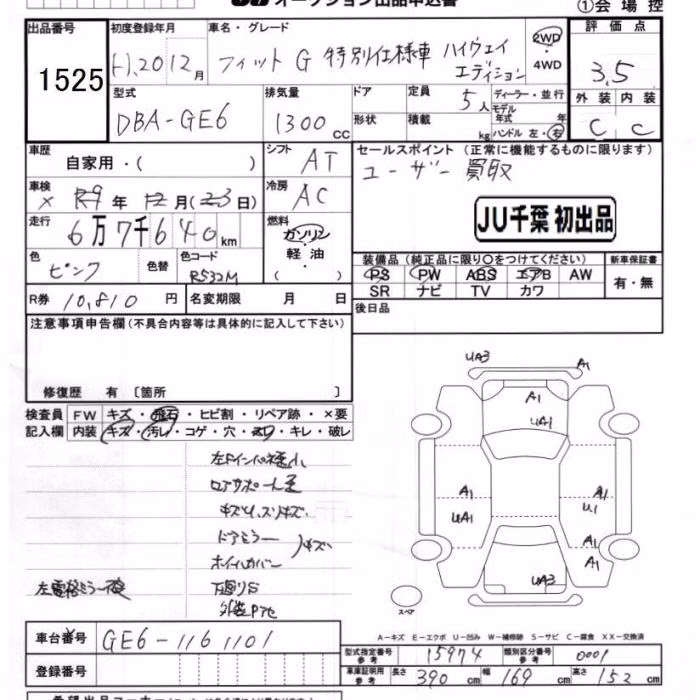 オークション出品申込書 ①会場控
出品番号 初度登録年月 車名・グレード 評価点
1525 H.20 12月 フィット G 特別仕様車 ハイウェイ エディション 2WD・4WD 3.5
型式 排気量 ドア 定員 ディーラー・並行 外装 内装
DBA-GE6 1300cc 形状 積載 5人 kg モデル年式 年 ハンドル 左・右 C C
車歴 自家用・( ) シフト AT セールスポイント (正常に機能するものに限ります)
車検 × R9年12月(23日) 冷房 AC ユーザー買取
走行 6万7千640km 燃料 ガソリン 軽油 ( ) JU千葉 初出品
色 ピンク 色替 色コード R532M 装備品 (純正品に限り○をつけてください) 新車保証書
PS PW ABS エアB AW 有・無
R券 10,810円 名変期限 月 日 SR ナビ TV カワ
注意事項申告欄(不具合内容等は具体的に記入して下さい) 後日品
修復歴 有 〔箇所 〕
検査員 FW キズ・飛石・ヒビ割・リペア跡・×要
記入欄 内装 キズ・汚れ・コゲ・穴・スレ・キレ・破レ
UA3 A1
A1
UA1
A1 A1
UA1 U1
A1
A1
UA3
スペア
ロアサポート
キズ
ドアミラー
ホイールカバー
下廻りS
A-キズ E-エクボ U-凹み W-補修跡 S-サビ C-腐食 XX-交換済
車台番号 GE6-1161101
型式指定番号 参考 15974 類別区分番号 参考 0001
登録番号
車庫証明用 参考 長さ 390cm 幅 169cm 高さ 152cm